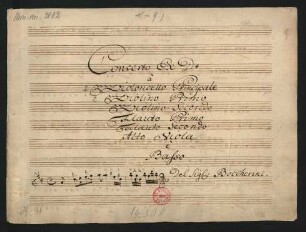 Concerto
à
Violoncello Principale
Violino Primo
Violino Secondo
Flauto Primo
Flauto Secondo
Alto Viola
e
Basso
Del Sigr. Boccherini.